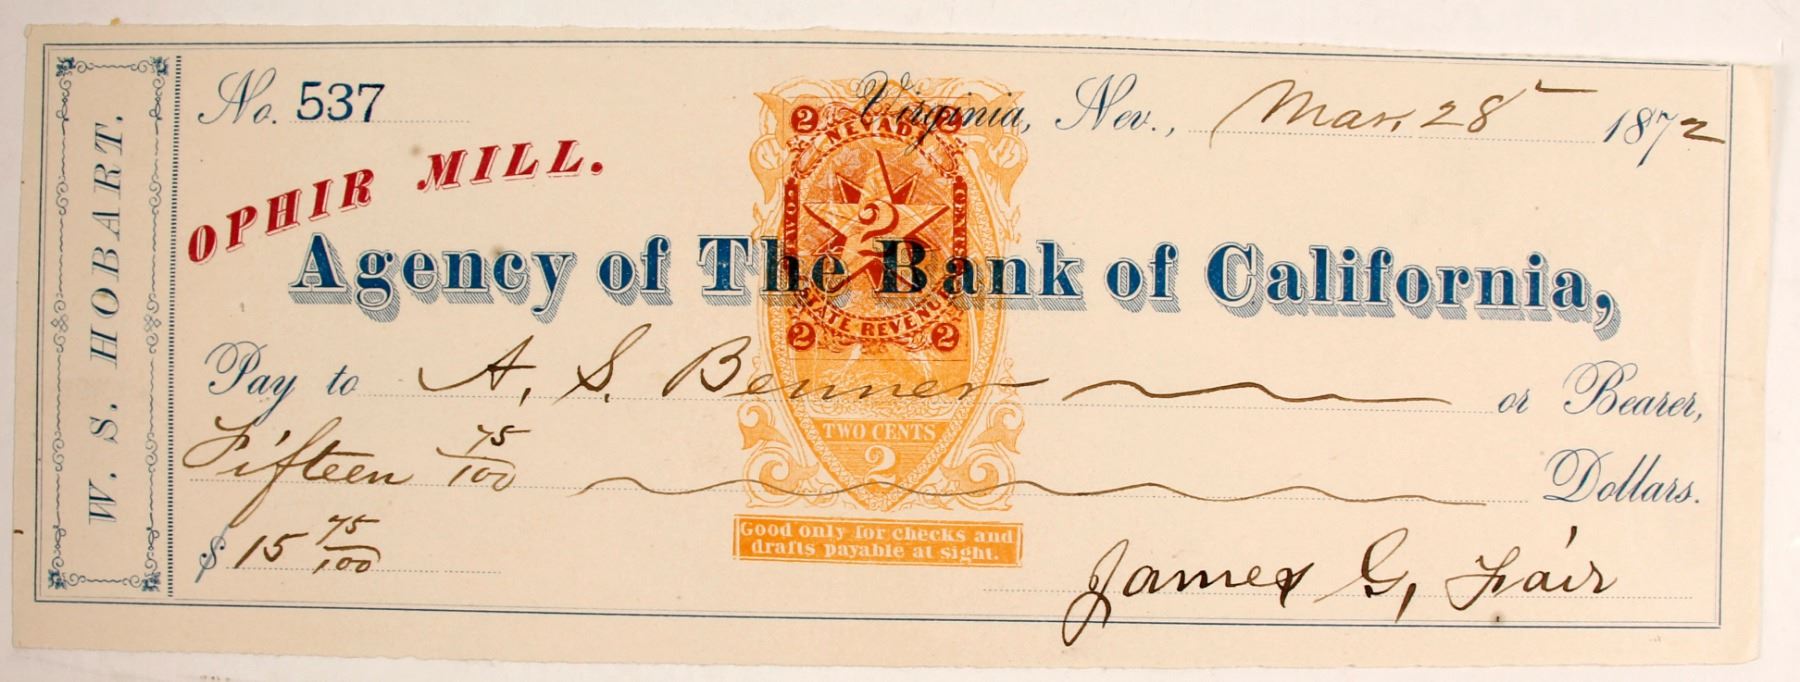 W. S. HOBART.
No. 537
Virginia, Nev., Mar. 28 1872
OPHIR MILL.
2 2
NEVADA
TWO 2
2
STATE REVENUE
2 2
Agency of The Bank of California,
Pay to A. S. Benner or Bearer,
Fifteen 75/100 Dollars.
TWO CENTS
2
$ 15 75/100
Good only for checks and
drafts payable at sight.
James G. Fair